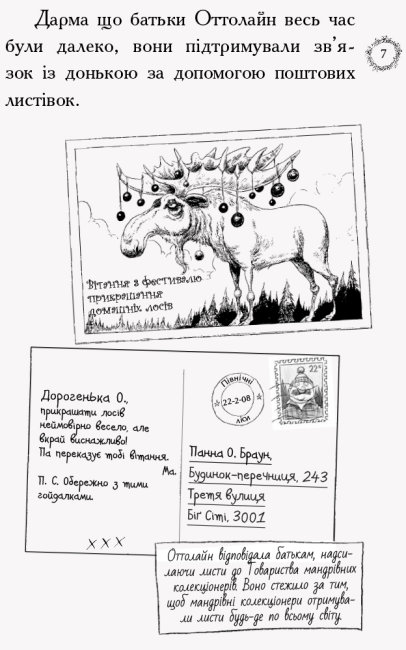 Дарма що батьки Оттолайн весь час
були далеко, вони підтримували зв’я-
зок із донькою за допомогою поштових
листівок.
7
Вітання з фестивалю
прикрашання
домашніх лосів
Дорогенька О.,
прикрашати лосів
неймовірно весело, але
вкрай виснажливо!
Па переказує тобі вітання.
Ма.
П. С. Обережно з тими
гойдалками.
X X X
Північні
22-2-08
ліки
22¢
Панна О. Браун,
Будинок-перечниця, 243
Третя вулиця
Біг Сіті, 3001
Оттолайн відповідала батькам, надси-
лаючи листи до Товариства мандрівних
колекціонерів. Воно стежило за тим,
щоб мандрівні колекціонери отримува-
ли листи будь-де по всьому світу.